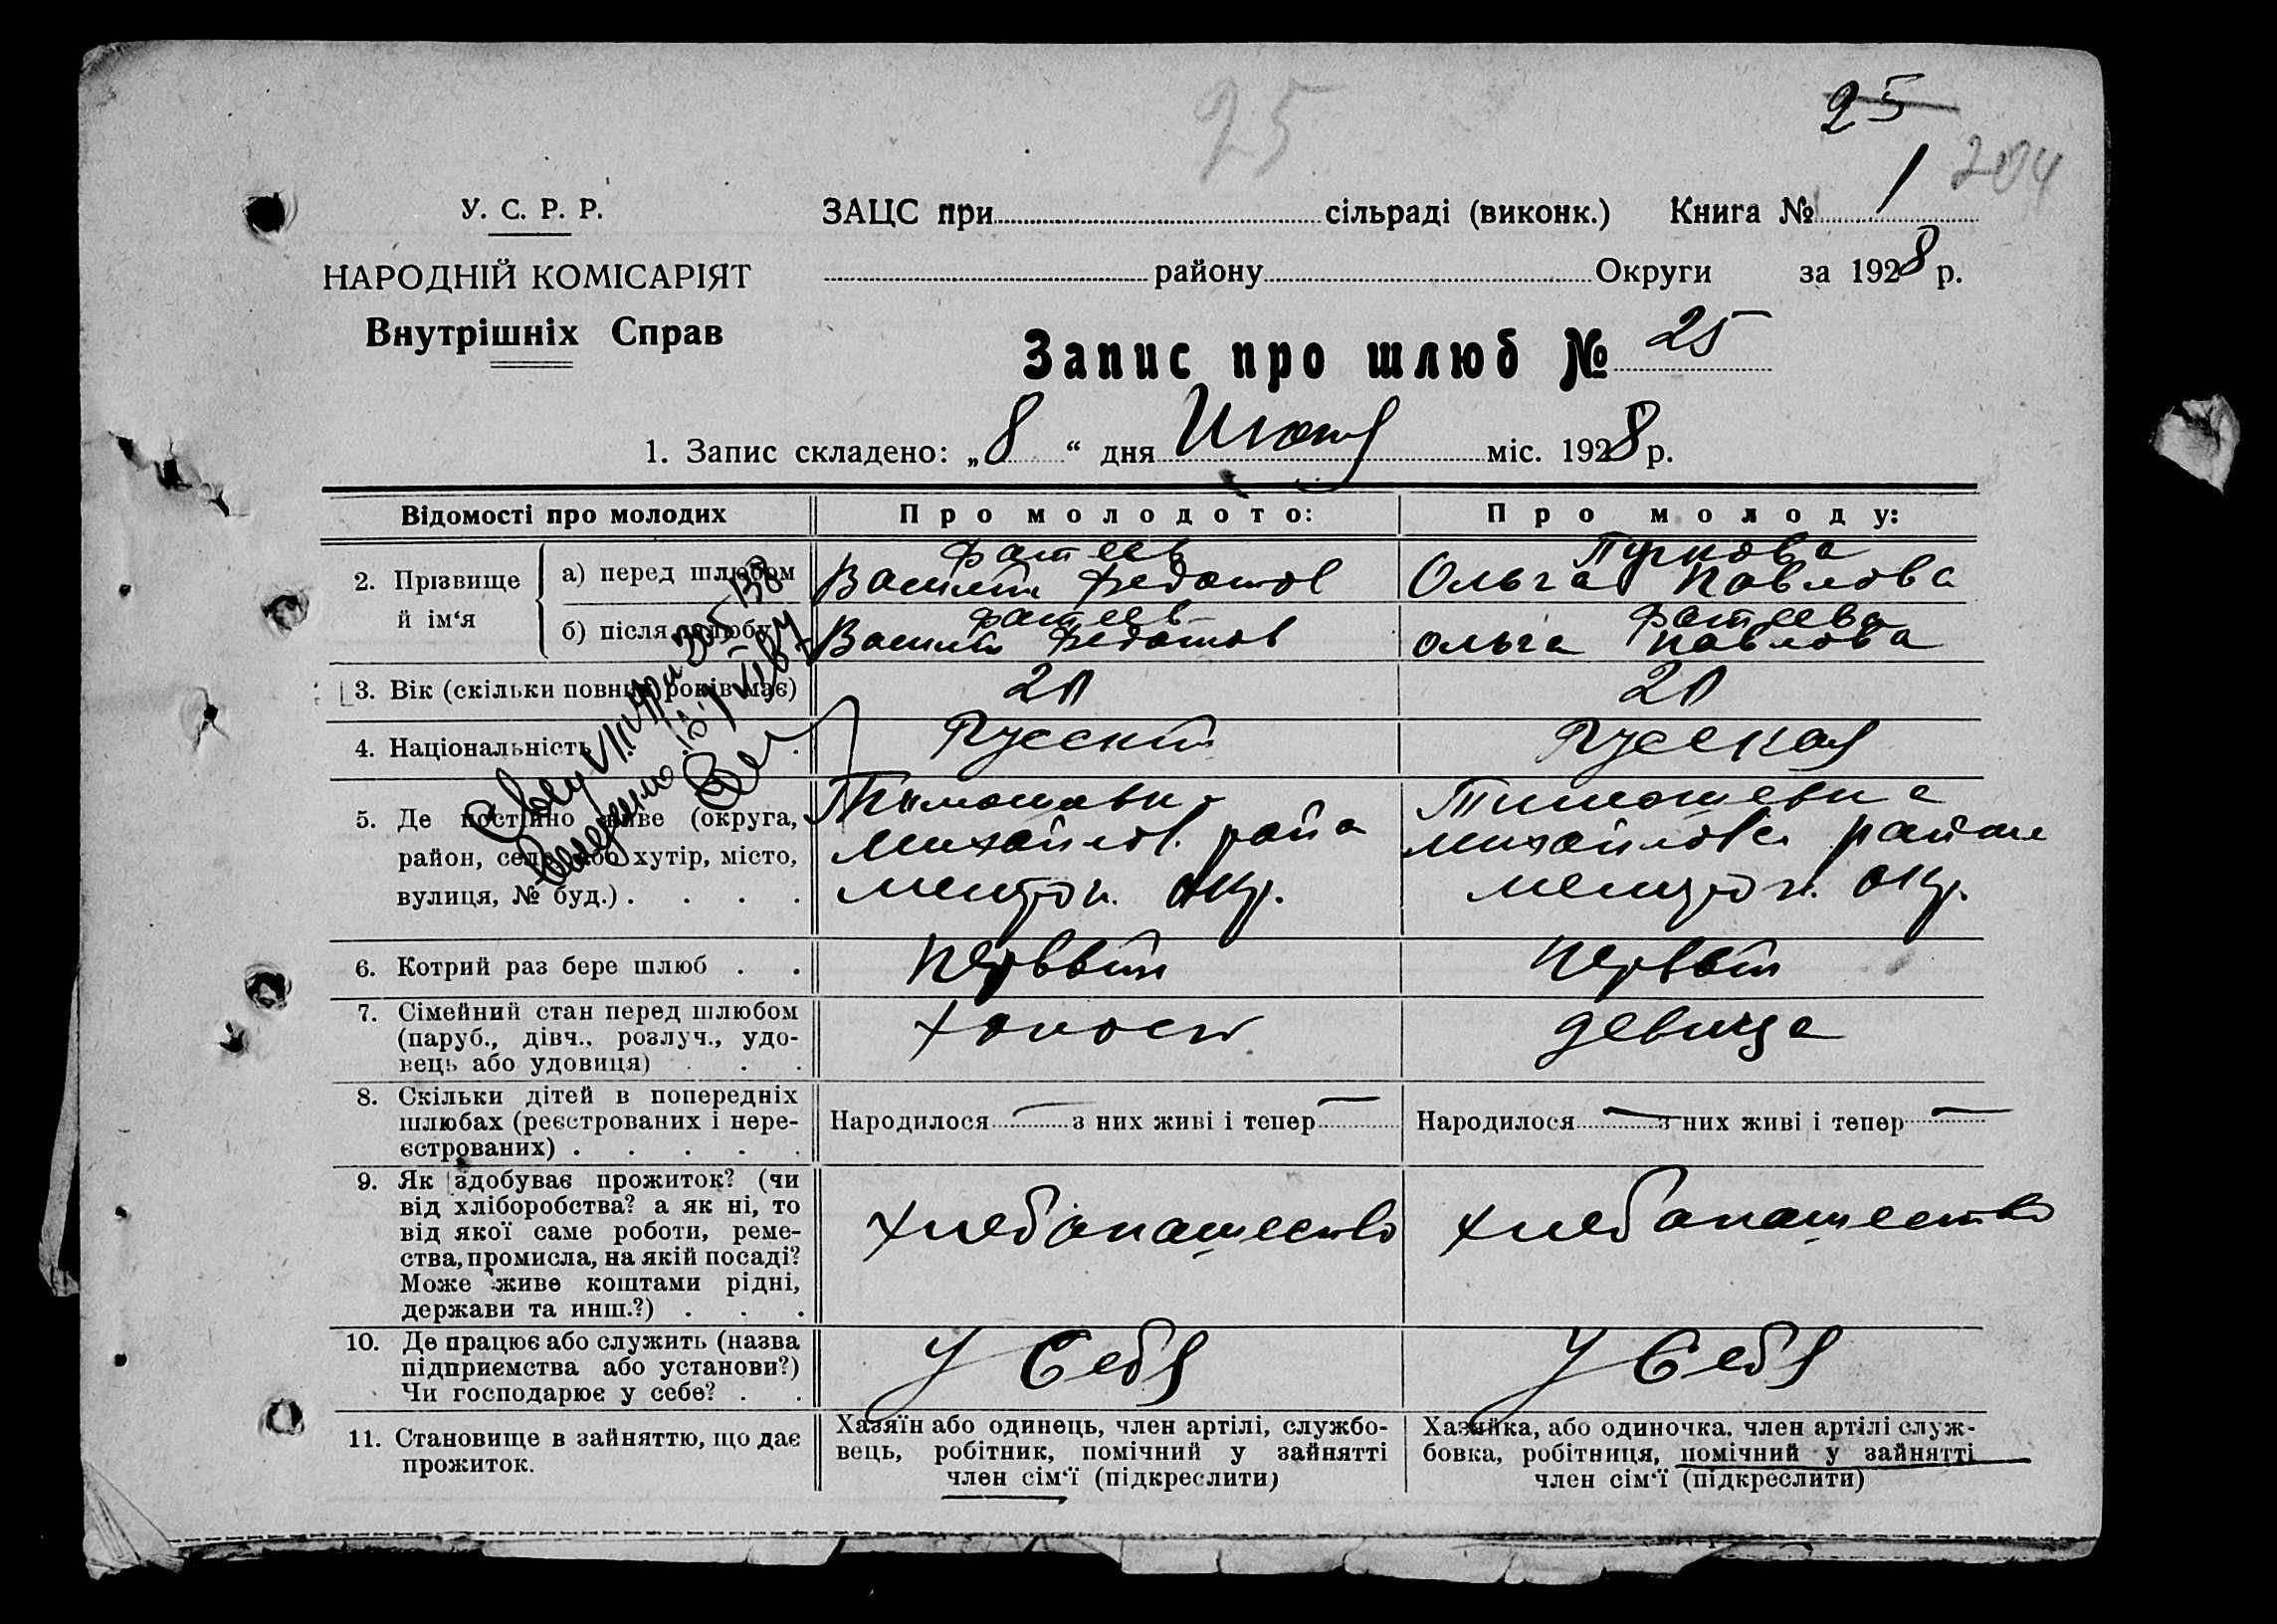 25
25
204
У. С. Р. Р.
ЗАЦС при сільраді (виконк.) Книга № 1
НАРОДНІЙ КОМІСАРІЯТ
району Округи за 1928 р.
Внутрішніх Справ
Запис про шлюб № 25
1. Запис складено: „8“ дня міс. 1928 р.
Відомості про молодих
Про молодого:
Про молоду:
2. Прізвище й ім‘я
а) перед шлюбом
Фатеев
Василий Федотов
Ольга Павлова
б) після шлюбу
Фатеев
Василий Федотов
Фатеева
Ольга Павлова
3. Вік (скільки повних років має)
4. Національність
Русский
Русская
5. Де постійно живе (округа,
район, село або хутір, місто,
вулиця, № буд.) . . . .
Михайлов. район
Мелитоп. окр.
Тимошевка
Михайловск район
Мелитоп. окр.
6. Котрий раз бере шлюб . .
Первый
Первый
7. Сімейний стан перед шлюбом
(паруб., дівч., розлуч., удо-
вець або удовиця) . . .
Холост
девица
8. Скільки дітей в попередніх
шлюбах (реєстрованих і нере-
єстрованих) . . . . .
Народилося — з них живі і тепер —
Народилося — з них живі і тепер —
9. Як здобуває прожиток? (чи
від хліборобства? а як ні, то
від якої саме роботи, реме-
ства, промисла, на якій посаді?
Може живе коштами рідні,
держави та инш.?) . . .
Хлебопашество
Хлебопашество
10. Де працює або служить (назва
підприємства або установи?)
Чи господарює у себе? . .
У Себя
У Себя
11. Становище в зайняттю, що дає
прожиток.
Хазяїн або одинець, член артілі, службо-
вець, робітник, помічний у зайнятті
член сім‘ї (підкреслити)
Хазяйка, або одиночка, член артілі служ-
бовка, робітниця, помічний у зайнятті
член сім‘ї (підкреслити)